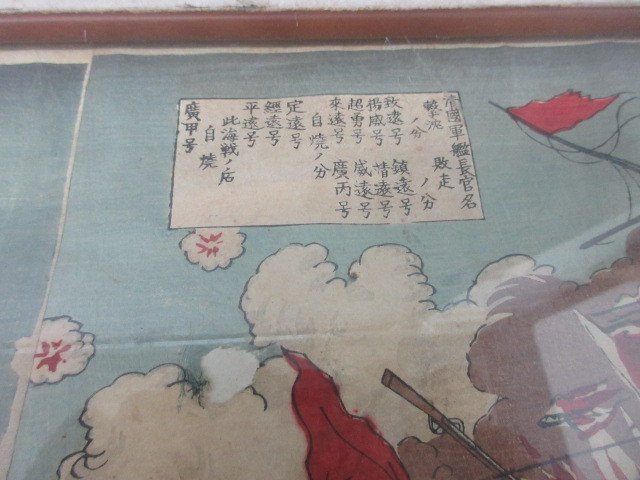 清國軍艦長官名
撃沈ノ分 敗走ノ分
致遠号 鎮遠号
揚威号 靖遠号
超勇号 威遠号
來遠号 廣丙号
自燒ノ分
定遠号
經遠号
平遠号
此海戦ノ后
自燒
廣甲号